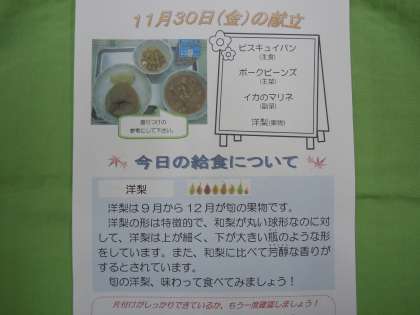 11月30日(金)の献立
ビスキュイパン
(主食)
ポークビーンズ
(主菜)
イカのマリネ
(副菜)
洋梨(果物)
盛りつけの
参考にして下さい。
今日の給食について
洋梨
洋梨は9月から12月が旬の果物です。
洋梨の形は特徴的で、和梨が丸い球形なのに対
して、洋梨は上が細く、下が大きい瓶のような形
をしています。また、和梨に比べて芳醇な香りが
するとされています。
旬の洋梨、味わって食べてみましょう!
片付けがしっかりできているか、もう一度確認しましょう!